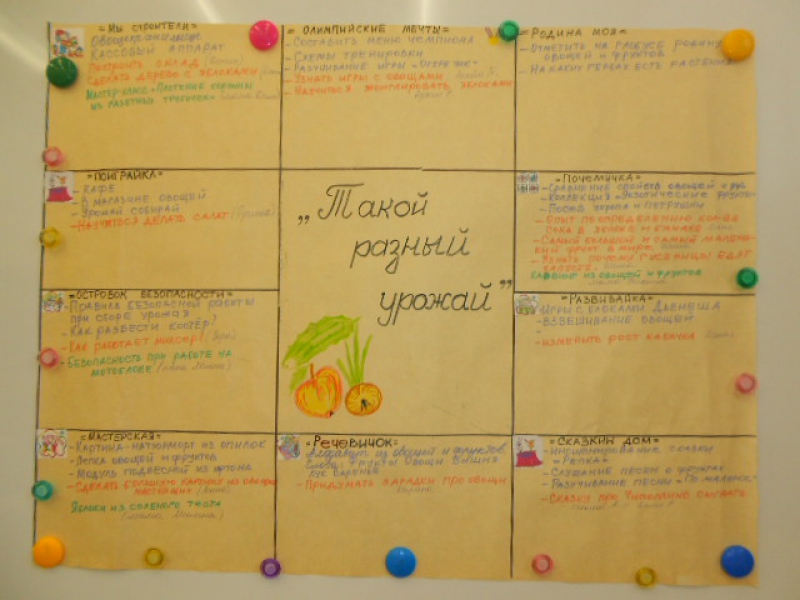 =МЫ СТРОИТЕЛИ=
Овощехранилище
КАССОВЫЙ АППАРАТ
Построить склад
Сделать дерево с яблоками
Мастер-класс «Плетение корзины
из газетных трубочек»
= ОЛИМПИЙСКИЕ МЕЧТЫ=
- Составить меню чемпиона
- Схемы тренировки
- Разучивание игры
- Узнать игры с овощами
- Научиться жонглировать яблоками
=РОДИНА МОЯ=
- Отметить на глобусе родину
овощей и фруктов
- На каких гербах есть растения
=ПОИГРАЙКА=
- КАФЕ
- В МАГАЗИНЕ ОВОЩЕЙ
- Урожай собирай
- Научиться делать салат
„Такой
разный
урожай”
=Почемучка=
- Сравнение свойств овощей и
- Коллекция «Экзотические фрукты»
- Посев укропа и петрушки
- Опыт по определению
сока в яблоке и банане
- Самый большой и самый маленький
фрукт в мире
- Узнать почему гусеницы едят
капусту
Карвинг из овощей и фруктов
=ОСТРОВОК БЕЗОПАСНОСТИ=
- Правила безопасной работы
при сборе урожая
- Как развести костёр?
- Как работает миксер?
- Безопасность при работе на
мотоблоке
=РАЗВИВАЙКА=
- Игры с блоками Дьенеша
- Взвешивание овощей
- Измерить рост кабачка
=МАСТЕРСКАЯ=
- Картина-натюрморт из опилок
- Лепка овощей и фруктов
- Модуль подвесной из картона
- Сделать большую картину из овощей
настоящих
Яблоки из соленого теста
=Речевичок=
Алфавит из овощей и фруктов
Слова: фрукты овощи вишня
- Придумать загадки про овощи
=СКАЗКИН ДОМ=
- Инсценирование сказки
«Репка»
- Слушание песни о фруктах
- Разучивание песни «По малину»
- Сказку про Чиполлино слушать